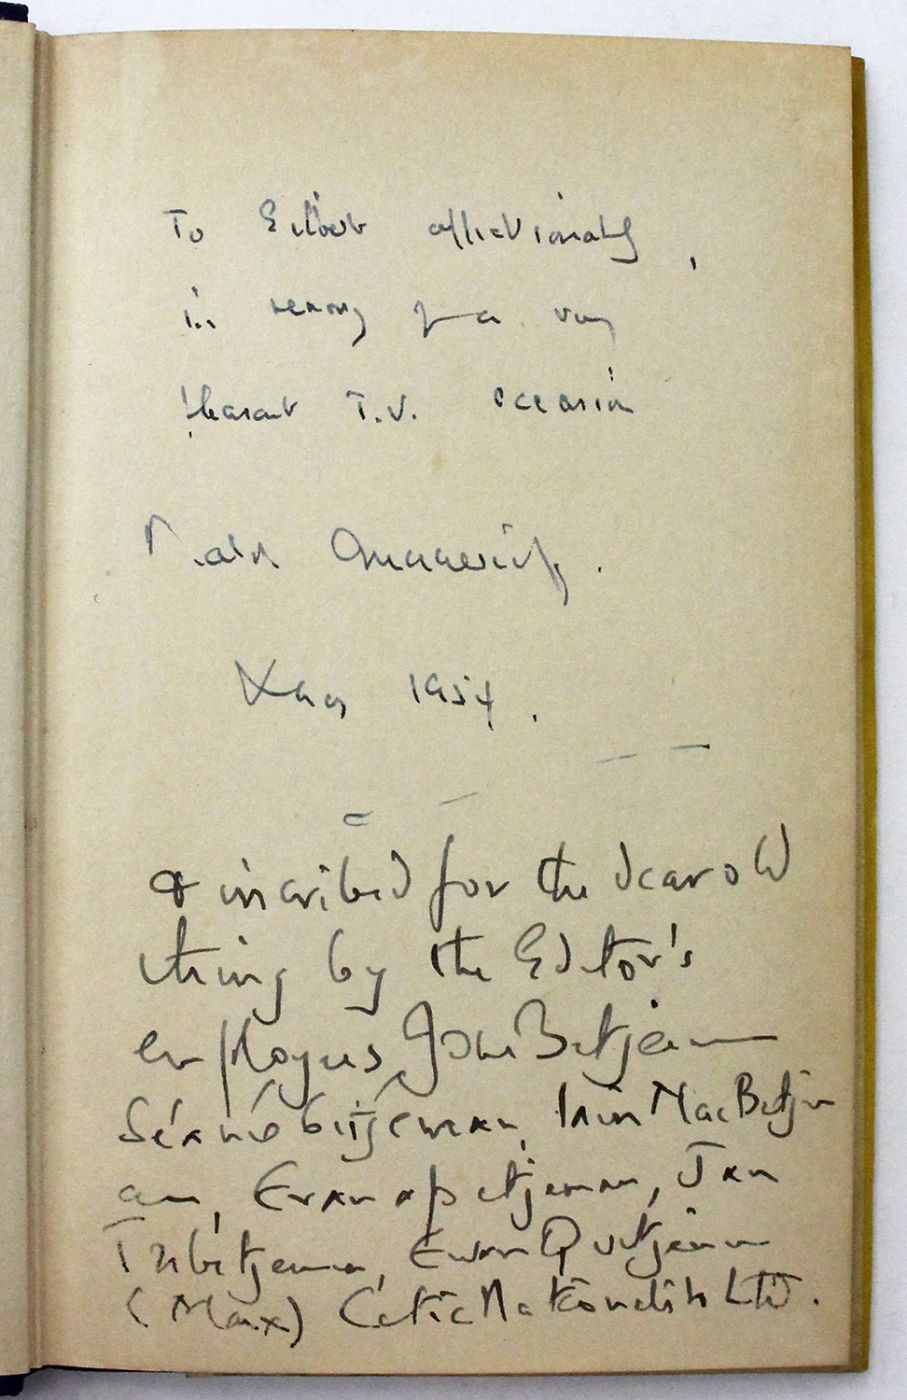 To Gilbert affectionately,
in memory of a very
pleasant T.V. occasion
Mark
1954.
& inscribed for the dear old
thing by the Editor's
employees John Betjeman
Séan Ó Betjeman, Iain MacBetjem
an, Evan ap Betjeman, Jan
Trebetjeman, Ewan Quetjeman
(Manx) Celtic Nationalists Ltd.